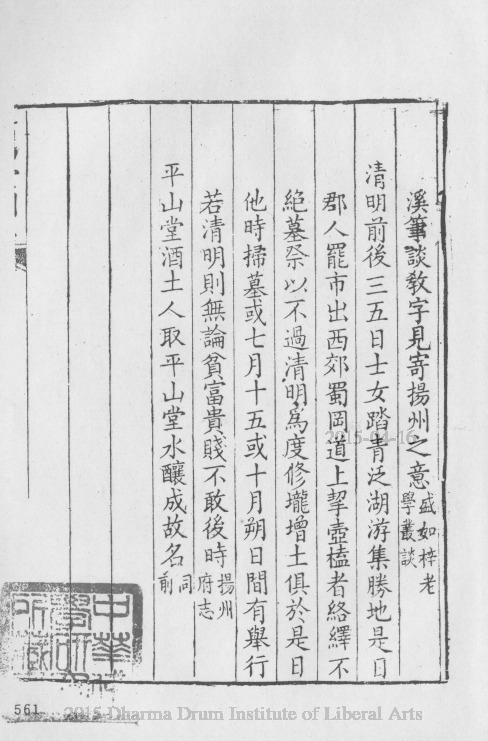 溪筆談教字見寄揚州之意盛如梓老學叢談
清明前後三五日士女踏青泛湖游集勝地是日
郡人罷市出西郊蜀岡道上挈壺榼者絡繹不
絕墓祭以不過清明為度修壠增土俱於是日
他時掃墓或七月十五或十月朔日間有舉行
若清明則無論貧富貴賤不敢後時揚州府志
平山堂酒土人取平山堂水釀成故名同前
中華
學研
所藏
2015-04-16
561
2015 Dharma Drum Institute of Liberal Arts